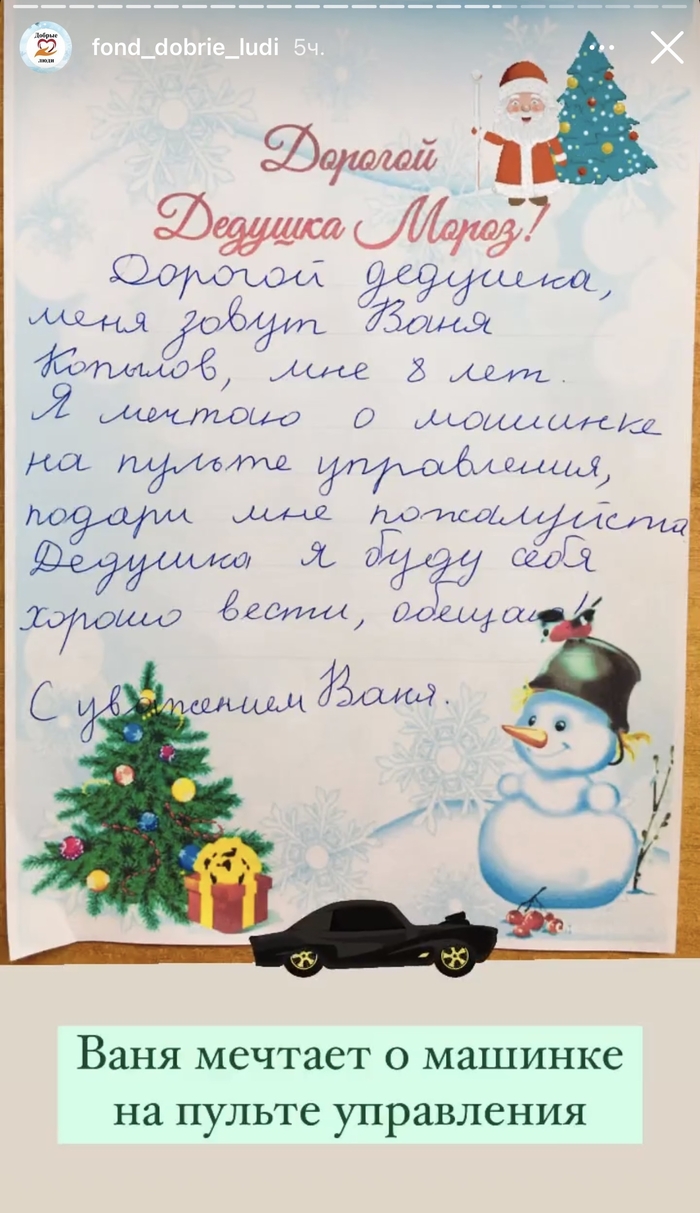 Добрые
люди
fond_dobrie_ludi 5ч.
Дорогой
Дедушка Мороз!
Дорогой дедушка,
меня зовут Ваня
Копылов, мне 8 лет.
Я мечтаю о машинке
на пульте управления,
подари мне пожалуйста
Дедушка я буду себя
хорошо вести, обещаю!
С уважением Ваня.
Ваня мечтает о машинке
на пульте управления